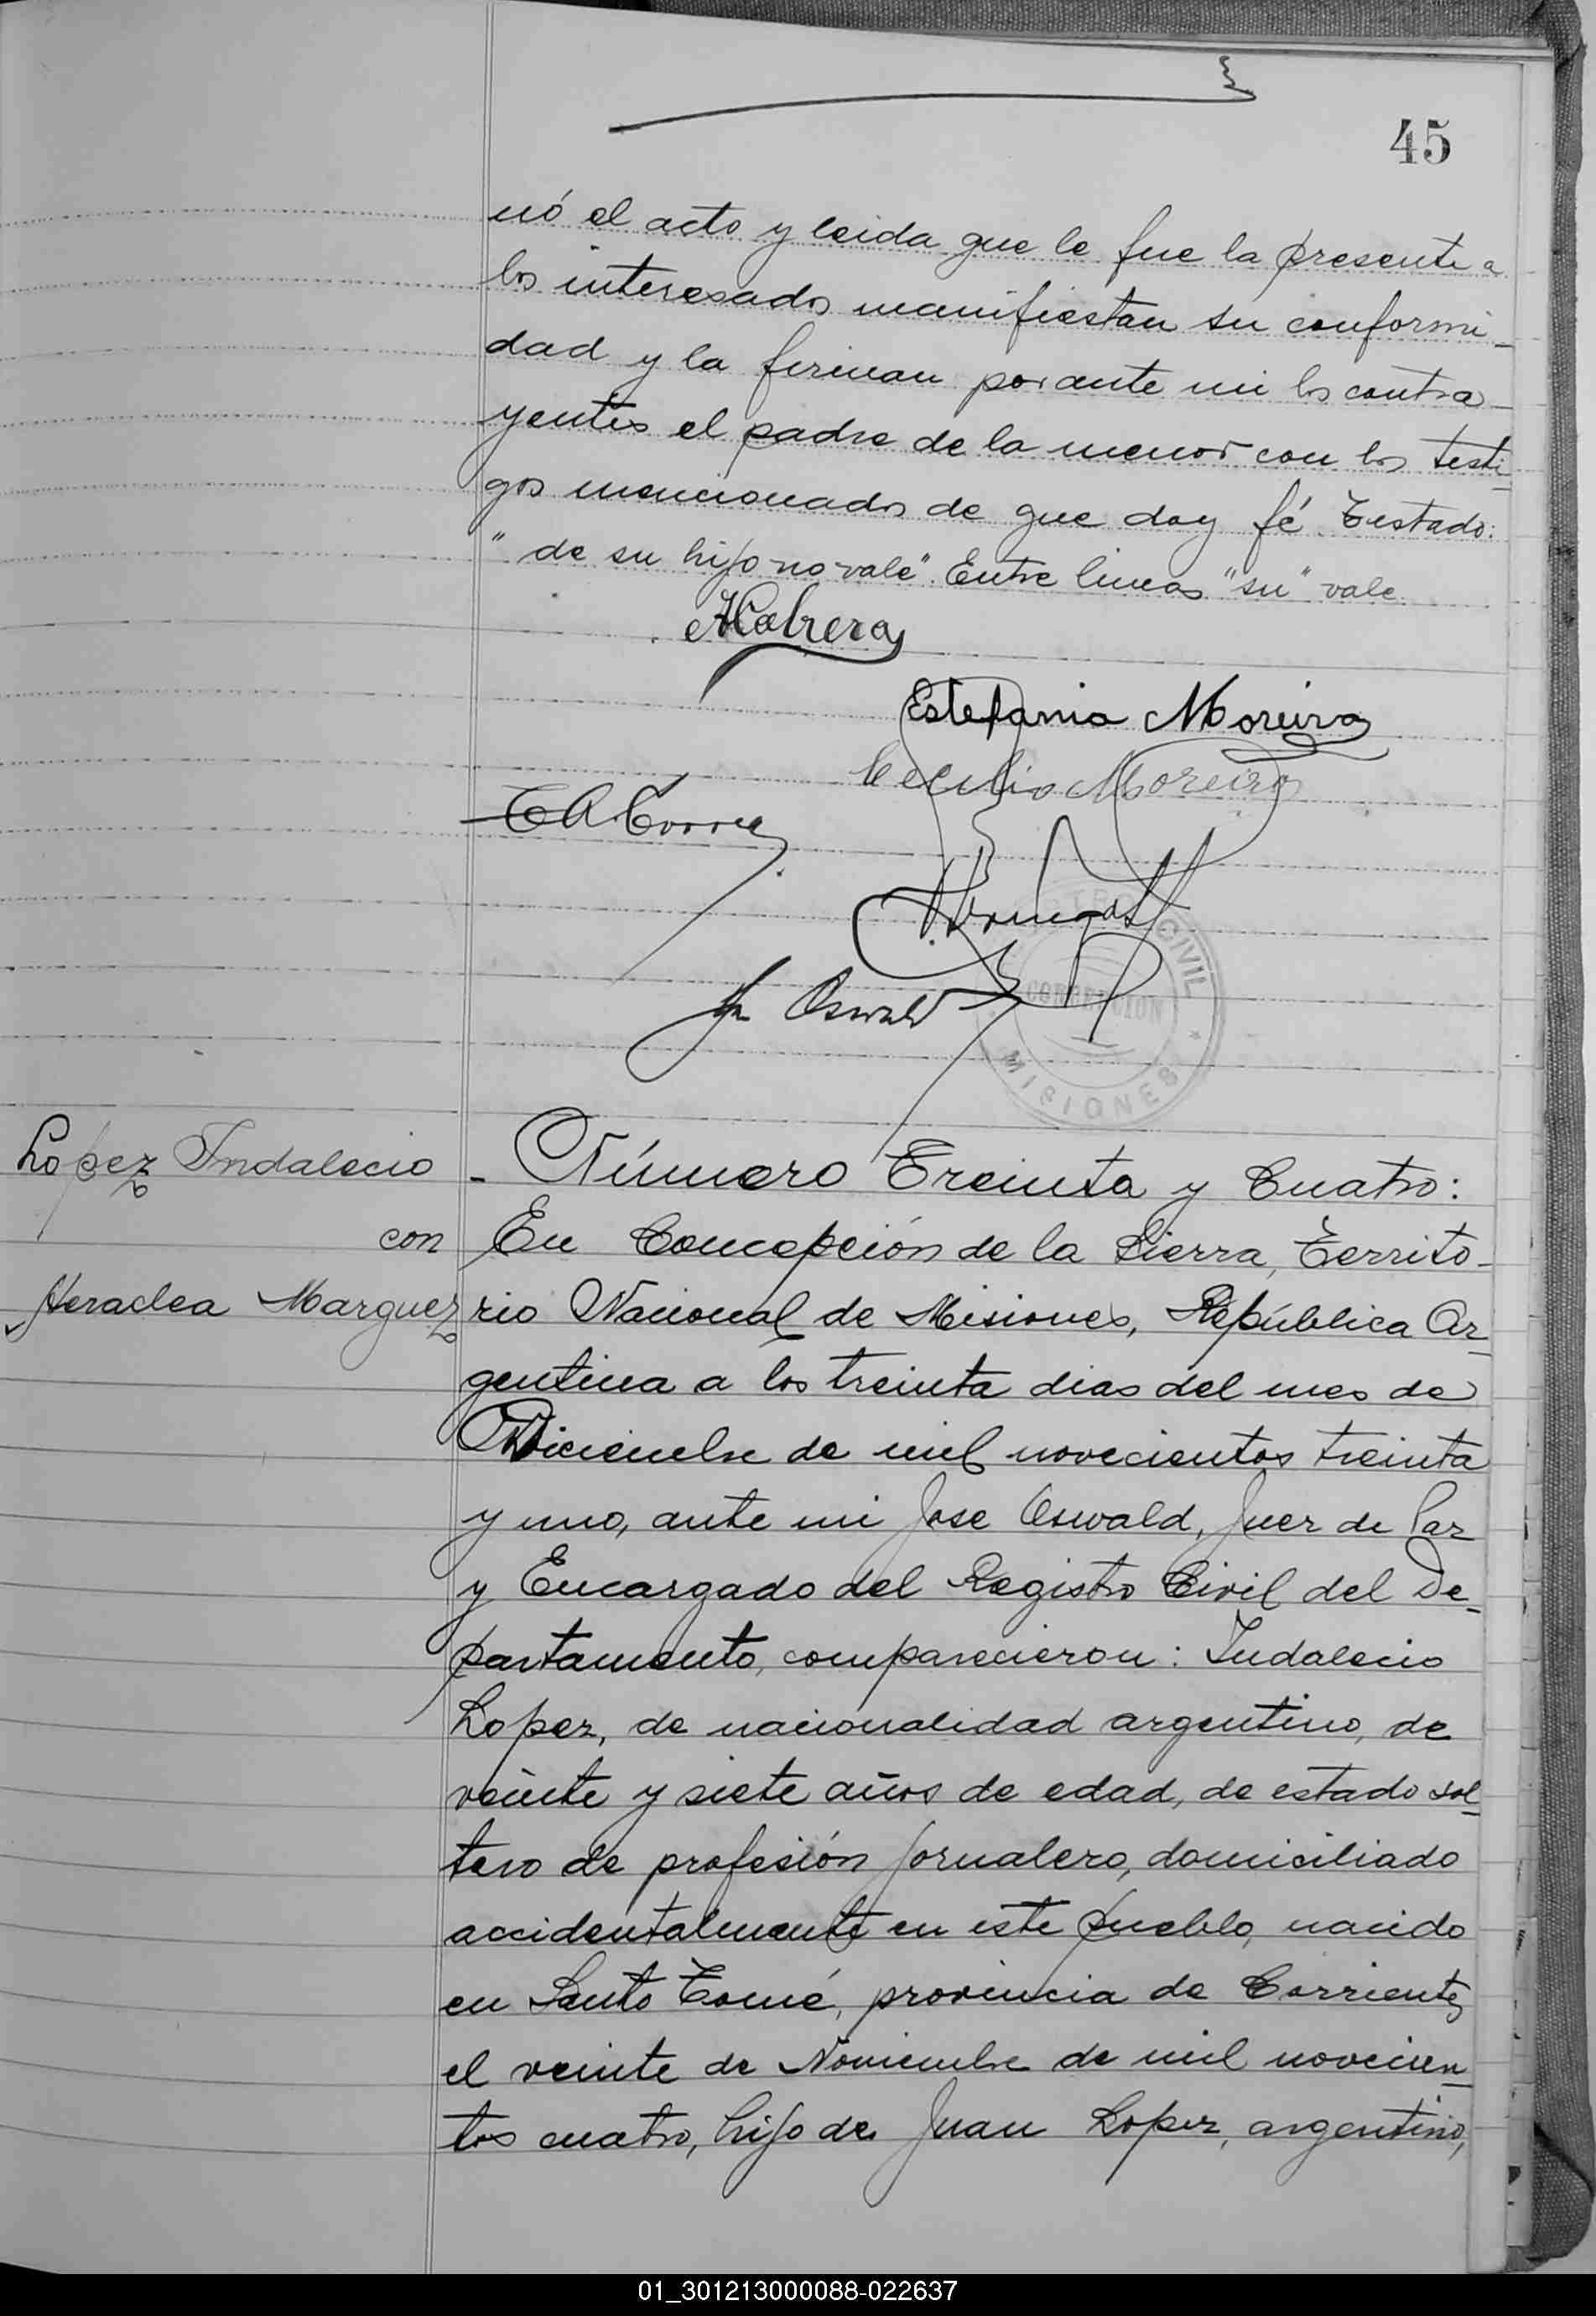 45
nó el acto y leida que le fue la presente a
los interesados manifiestan su conformi-
dad y la firman por ante mi los contra-
yentes el padre de la menor con los testi-
gos mencionados de que doy fé. Testado:
"de su hijo no vale". Entre lineas "su" vale
Estefania Moreira
Moreira
Oswald
CIVIL
CONCEPCION
MISIONES
Lopez Indalecio
con
Heraclea Marquez
- Número Treinta y Cuatro:
En Concepción de la Sierra, Territo-
rio Nacional de Misiones, República Ar-
gentina a los treinta dias del mes de
Diciembre de mil novecientos treinta
y uno, ante mi Jose Oswald, Juez de Paz
y Encargado del Registro Civil del De-
partamento, comparecieron: Indalecio
Lopez, de nacionalidad argentino, de
veinte y siete años de edad, de estado sol-
tero de profesión jornalero, domiciliado
accidentalmente en este pueblo, nacido
en Santo Tomé, provincia de Corrientes
el veinte de Noviembre de mil novecien-
tos cuatro, hijo de Juan Lopez, argentino,
01_301213000088-022637